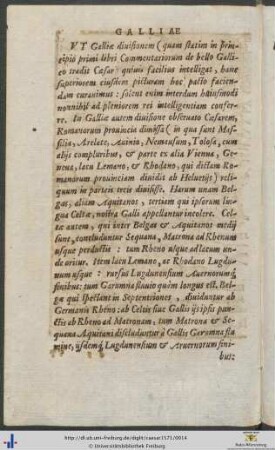 GALLIAE
VT Galliæ diuisionem (quam statim in prin-
cipio primi libri Commentariorum de bello Galli-
co tradit Cæsar) quiuis facilius intelligat, hanc
superioris eiusdem picturam hoc pacto facien-
dam curauimus: solent enim interdum huiusmodi
nonnihil ad pleniorem rei intelligentiam confer-
re. In Galliæ autem diuisione obseruato Cæsarem,
Romanorum prouincia dimissa (in qua sunt Mas-
silia, Arelate, Auinio, Nemausum, Tolosa, cum
alijs compluribus, & parte ex alia Vienna, Ge-
neua, lacu Lemano, & Rhodano, qui dictam Ro-
manorum prouinciam diuidit ab Heluetijs) reli-
quum in parteis treis diuisisse. Harum unam Bel-
gas, aliam Aquitanos, tertiam qui ipsorum lin-
gua Celtæ, nostra Galli appellantur incolere. Cel-
tæ autem, qui inter Belgas & Aquitanos medij
sunt, concluduntur Sequana, Matrona ad Rhenum
usque perductis: tum Rheno usque ad locum un-
de oritur. Item lacu Lemano, ac Rhodano Lugdu-
num usque: rursus Lugdunensium Auernorumq́;
finibus: tum Garumna fluuio quàm longus est. Bel-
gæ qui spectant in Septentriones, diuiduntur ab
Germanis Rheno: ab Celtis siue Gallis ijsipsis pun-
ctis ab Rheno ad Matronam, tum Matrona & Se-
quana. Aquitani discluduntur à Gallis Garumna flu
mine, ijsdemq́; Lugdunensium & Aruernorum fini-
bus:
http://dl.ub.uni-freiburg.de/diglit/caesar1571/0014